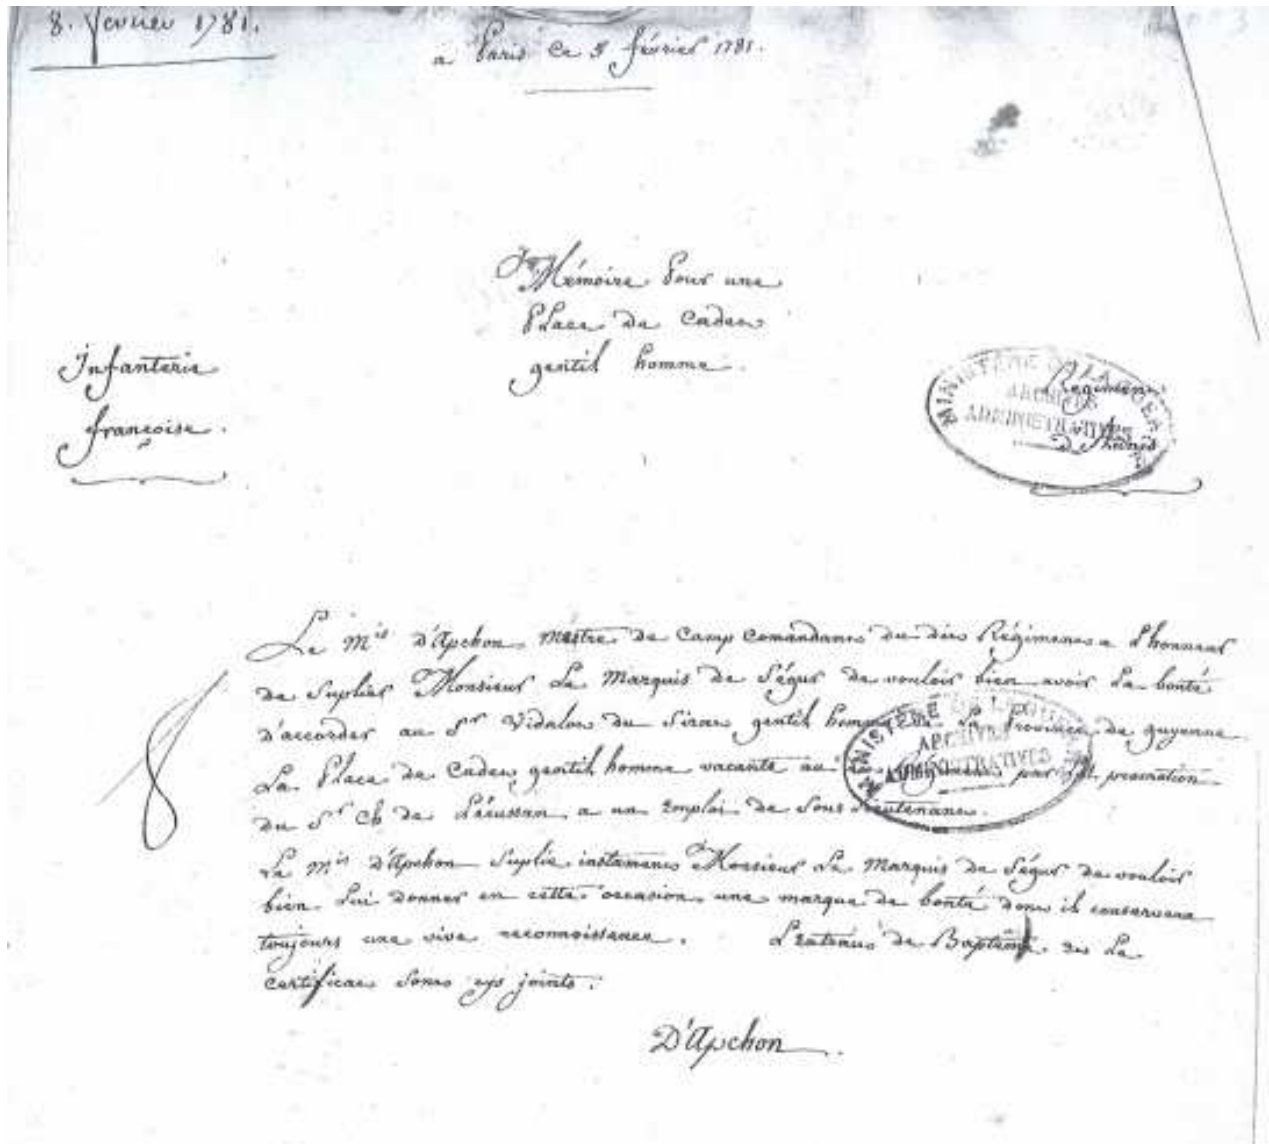 8. fevrier 1781.
à Paris ce 5 février 1781.
Mémoire pour une
Place de Cadet
gentil homme.
Infanterie
françoise.
Régiment
MINISTÈRE DE LA GUERRE
ARCHIVES
ADMINISTRATIVES
Le Mis d'Apchon Mestre de Camp Comandant du dit Régiment a l'honneur
de Suplier Monsieur Le Marquis de Ségur de vouloir bien avoir La bonté
d'accorder au Sr Vidalon du Sirat gentil homme de La Province de guyenne
La Place de Cadet gentil homme vacante au dit Régiment par La promotion
du Sr Ch de Lécussan a un Emploi de Sous Lieutenant.
MINISTÈRE DE LA GUERRE
ARCHIVES
ADMINISTRATIVES
Le Mis d'Apchon Suplie instament Monsieur Le Marquis de Ségur de vouloir
bien Lui donner en cette occasion une marque de bonté dont il conservera
toujours une vive reconnoissance. L'extrait de Baptême et Le
Certificat Sont cys joints.
D'Apchon.